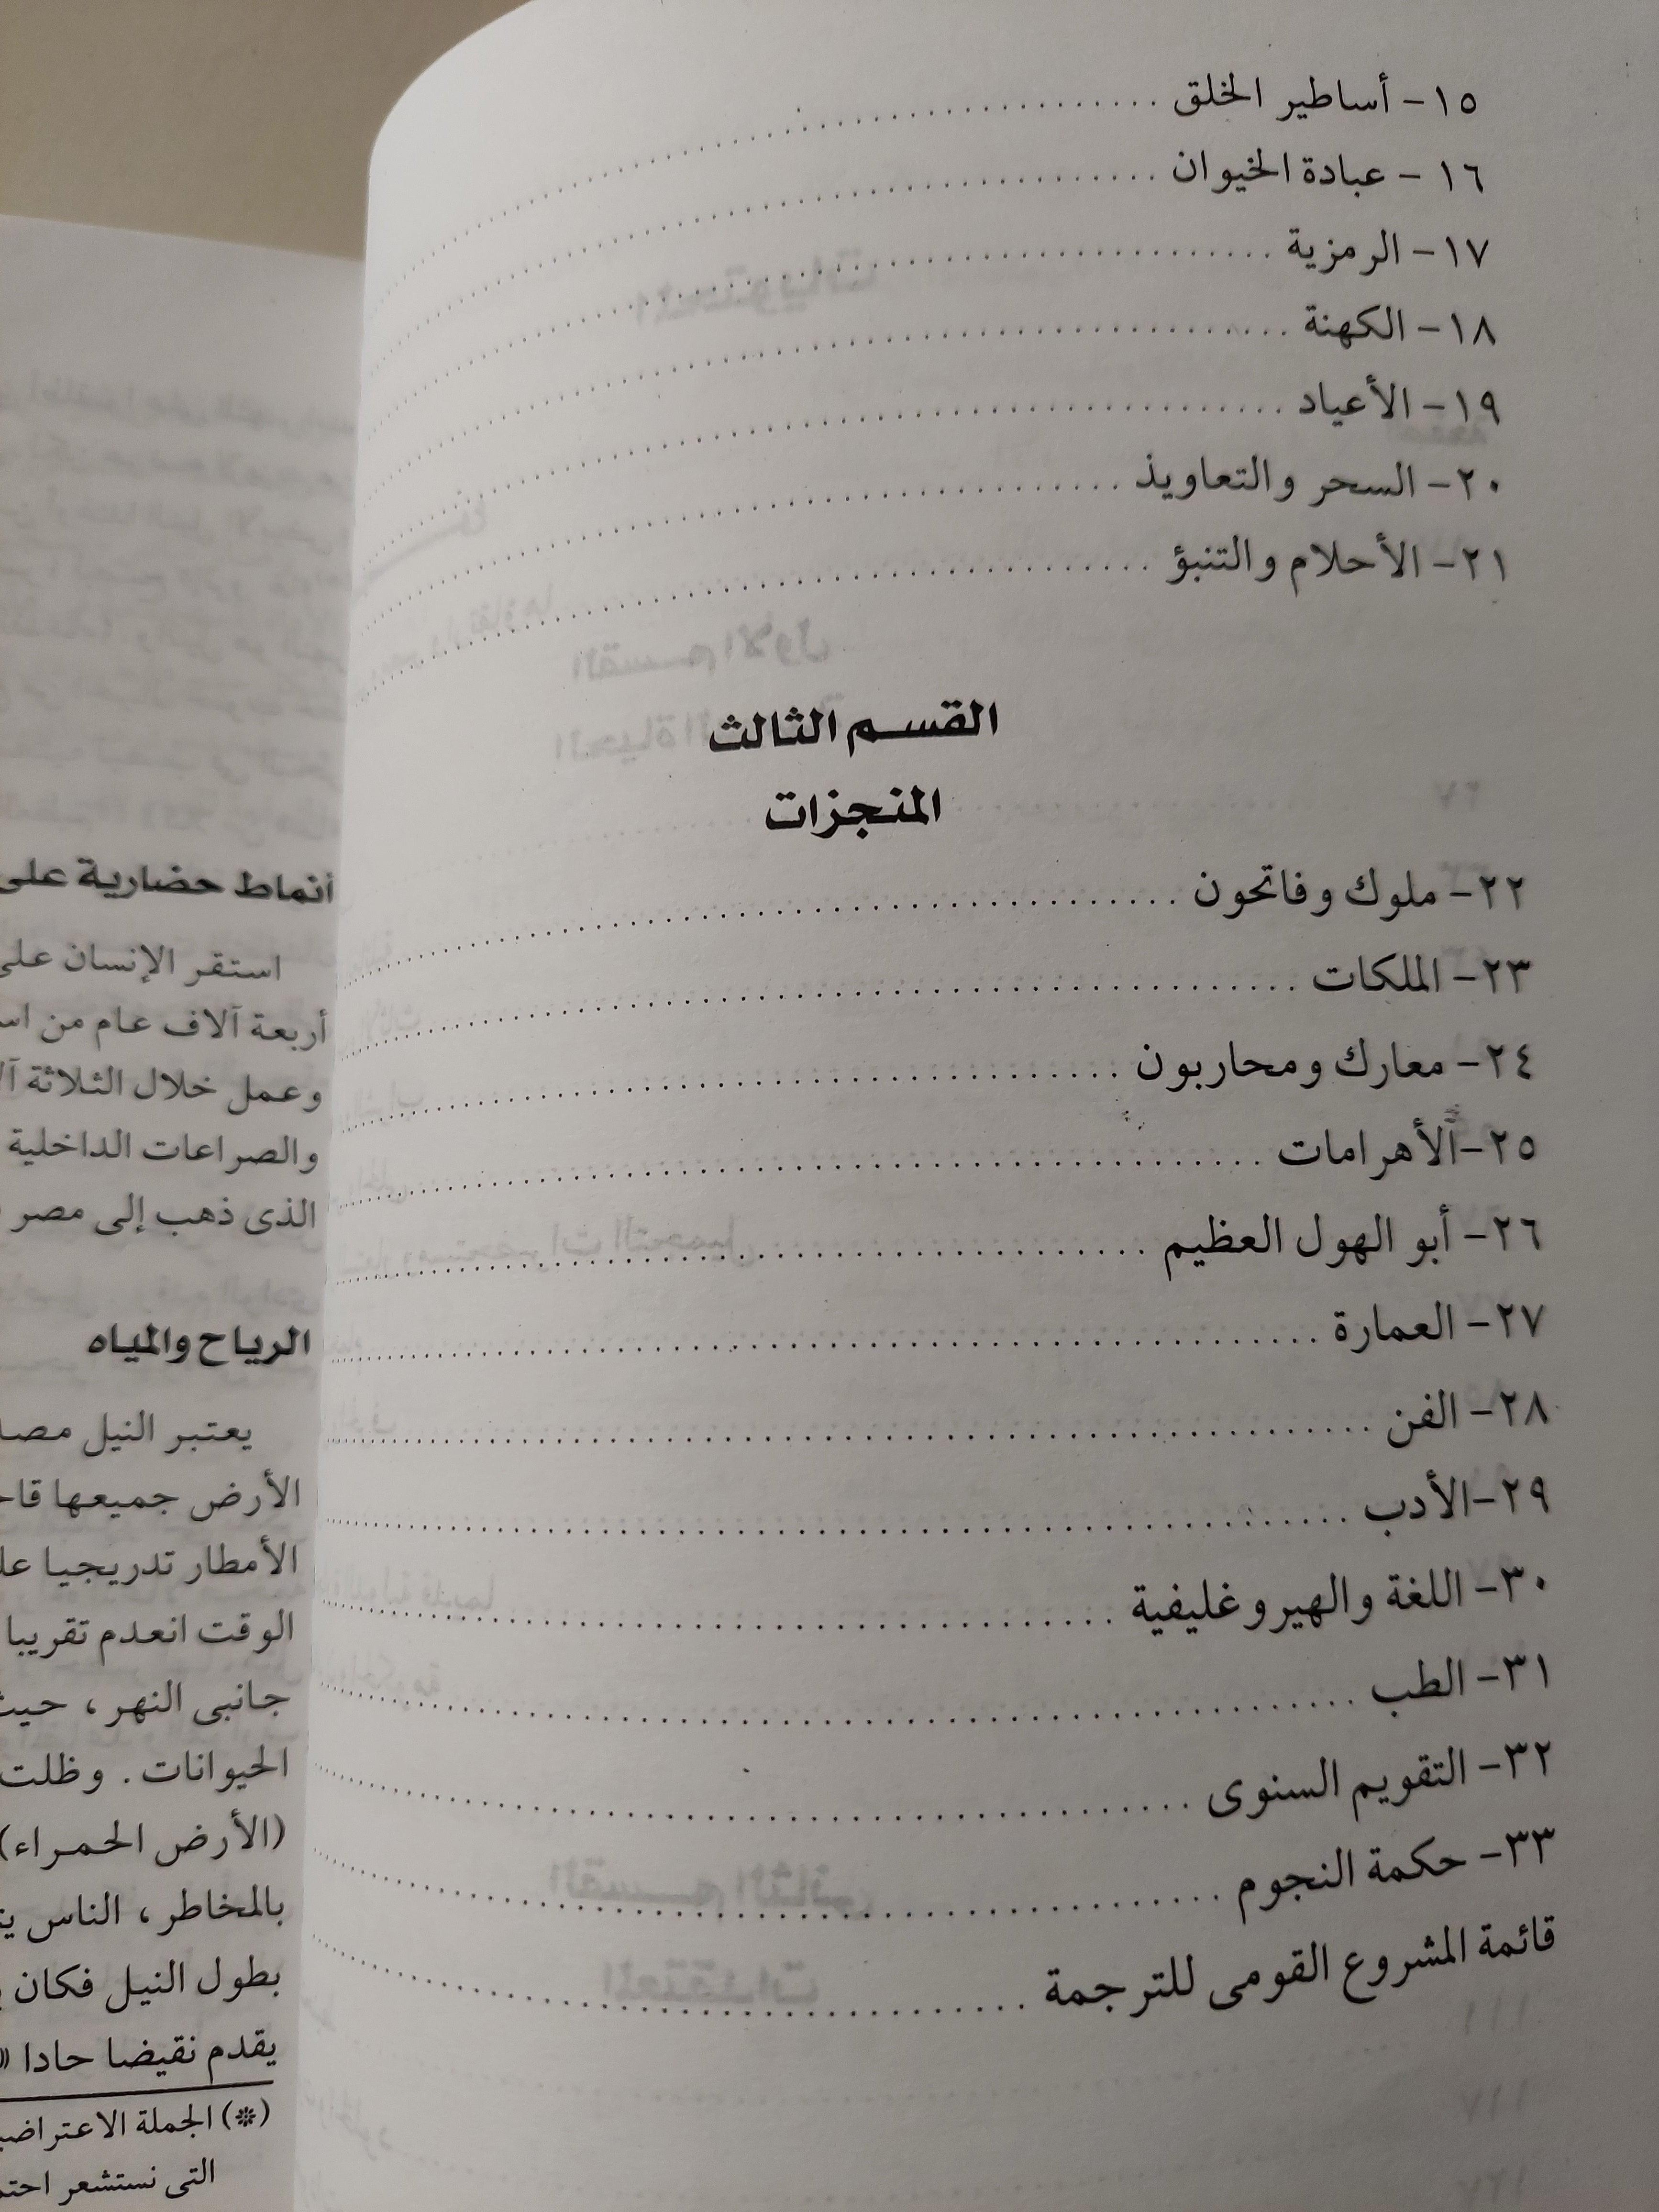 ١٥- أساطير الخلق
١٦ - عبادة الخيوان
١٧- الرمزية
١٨- الكهنة
١٩- الأعياد
٢٠- السحر والتعاويذ
٢١- الأحلام والتنبؤ
القسم الثالث
المنجزات
٢٢- ملوك وفاتحون
٢٣- الملكات
٢٤- معارك ومحاربون
٢٥-الأهرامات
٢٦- أبو الهول العظيم
٢٧- العمارة
٢٨- الفن
٢٩-الأدب
٣٠- اللغة والهيروغليفية
٣١- الطب
٣٢- التقويم السنوى
٣٣- حكمة النجوم
قائمة المشروع القومى للترجمة
أنماط حضارية على
استقر الإنسان على
أربعة آلاف عام من
وعمل خلال الثلاثة
والصراعات الداخلية
الذى ذهب إلى مصر
الرياح والمياه
يعتبر النيل
الأرض جميعها
الأمطار تدريجيا
الوقت انعدم تقريبا
جانبى النهر ،
الحيوانات . وظلت
(الأرض الحمراء)
بالمخاطر ، الناس
بطول النيل فكان
يقدم نقيضا حادا
(*) الجملة
التى نستشعر